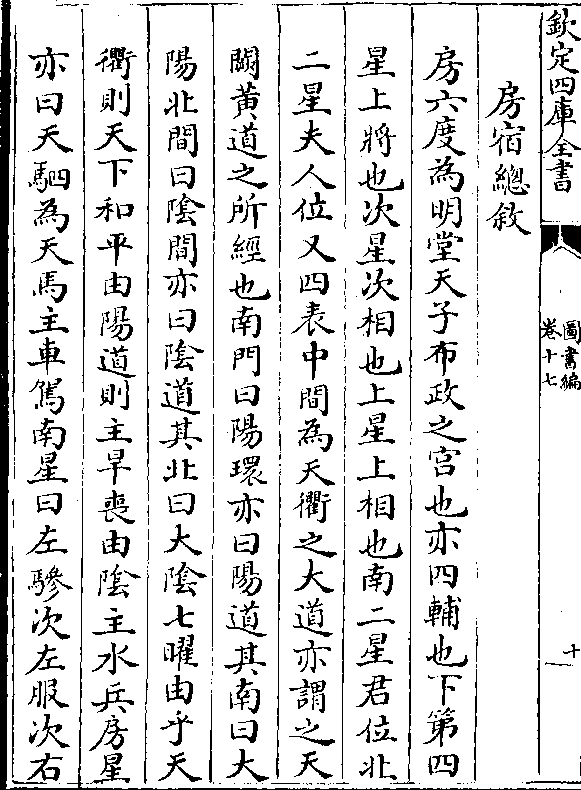 欽定四庫全書
圖書編
卷十七
十
房宿總敘
房六度為明堂天子布政之宮也亦四輔也下第四
星上將也次星次相也上星上相也南二星君位北
二星夫人位又四表中間為天衢之大道亦謂之天
闕黃道之所經也南門曰陽環亦曰陽道其南曰大
陽北間曰陰間亦曰陰道其北曰大陰七曜由乎天
衢則天下和平由陽道則主旱喪由陰主水兵房星
亦曰天駟為天馬主車駕南星曰左驂次左服次右